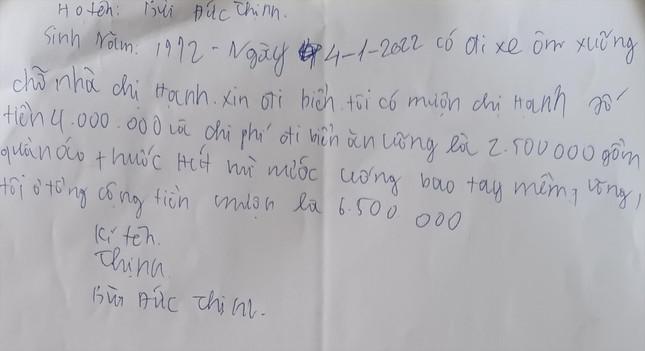 Họ tên: Bùi Đức Thịnh.
Sinh Năm: 1972 - Ngày 4-1-2022 có đi xe ôm xuống
chỗ nhà chị Hạnh. xin đi biển. tôi có mượn chị Hạnh số
tiền 4.000.000 và chi phí đi biển ăn uống là 2.500 000 gồm
quần áo thuốc Hút mì nước uống bao tay mềm, võng,
tôi ơ tổng cộng tiền mượn là 6.500 000
Kí tên.
Thịnh
Bùi Đức Thịnh.